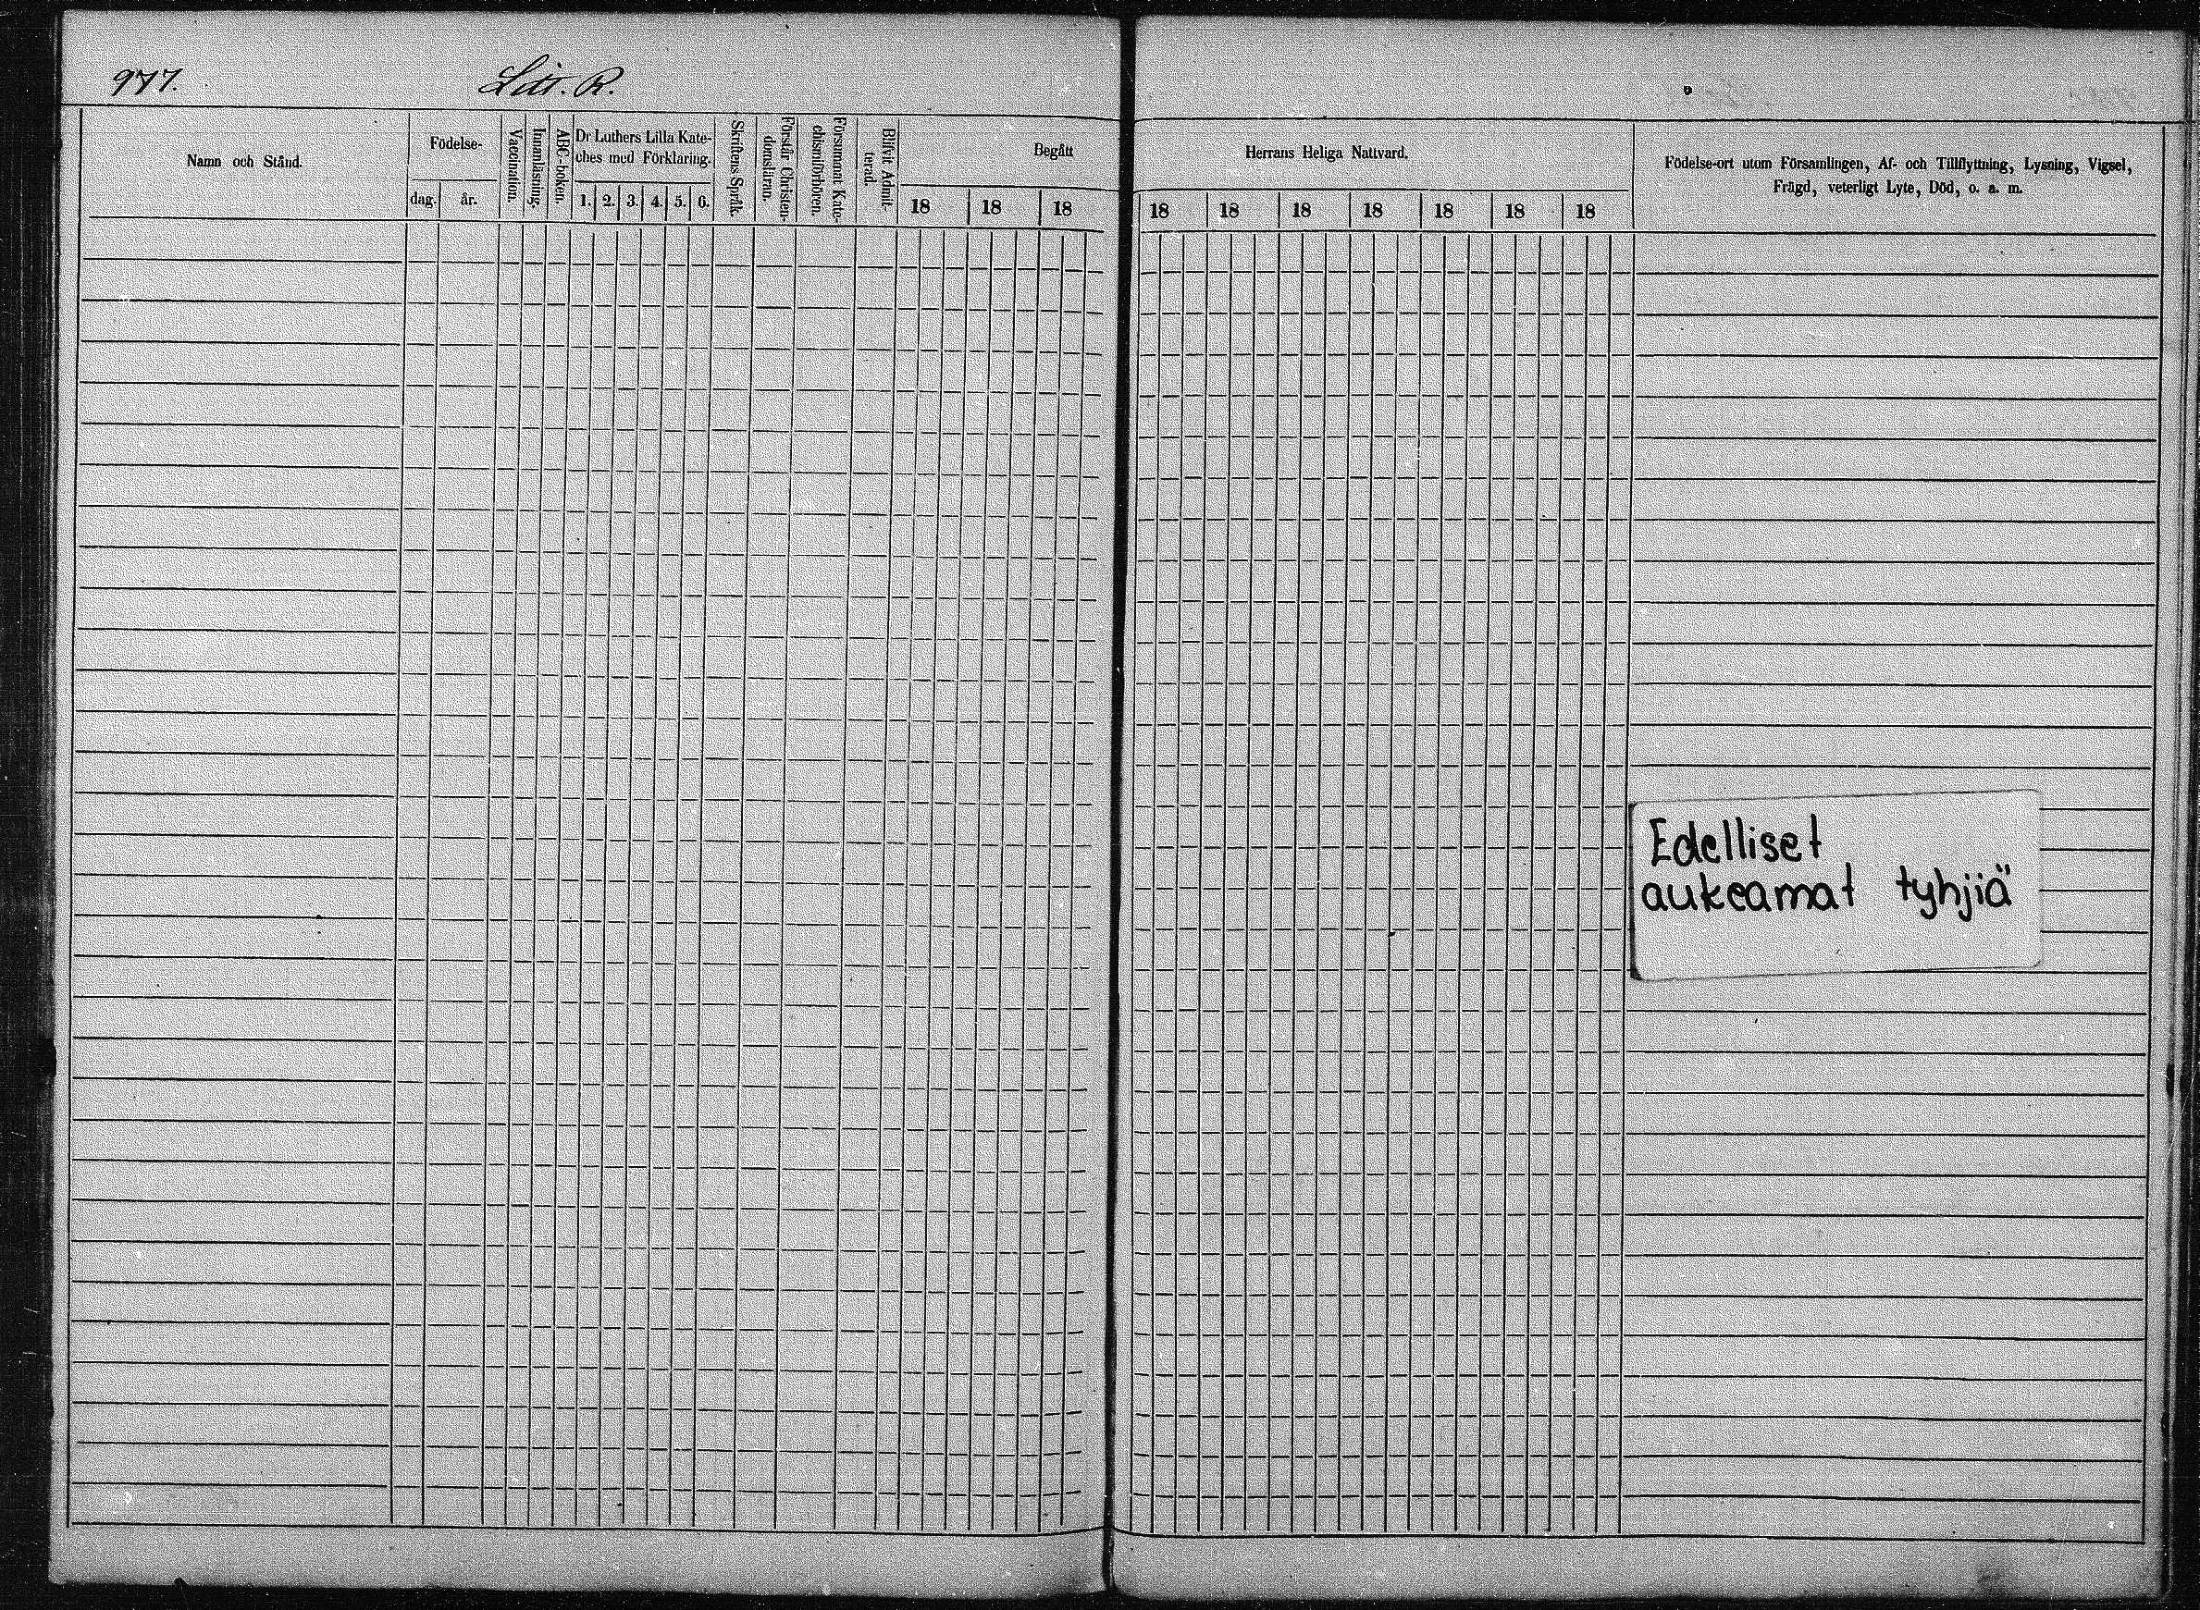 977. Litt. R.
Namn och Stånd.
Födelse-
dag. år.
Vaccination.
Innanläsning.
ABC-boken.
Dr Luthers Lilla Kate-
ches med Förklaring.
1. 2. 3. 4. 5. 6.
Skriftens Språk.
Förstår Christen-
domsläran.
Försummat Kate-
chismiförhören.
Blifvit Admit-
terad.
Begått
18 18 18
Herrans Heliga Nattvard.
18 18 18 18 18 18 18
Födelse-ort utom Församlingen, Af- och Tillflyttning, Lysning, Vigsel,
Frägd, veterligt Lyte, Död, o. a. m.
Edelliset
aukeamat tyhjiä